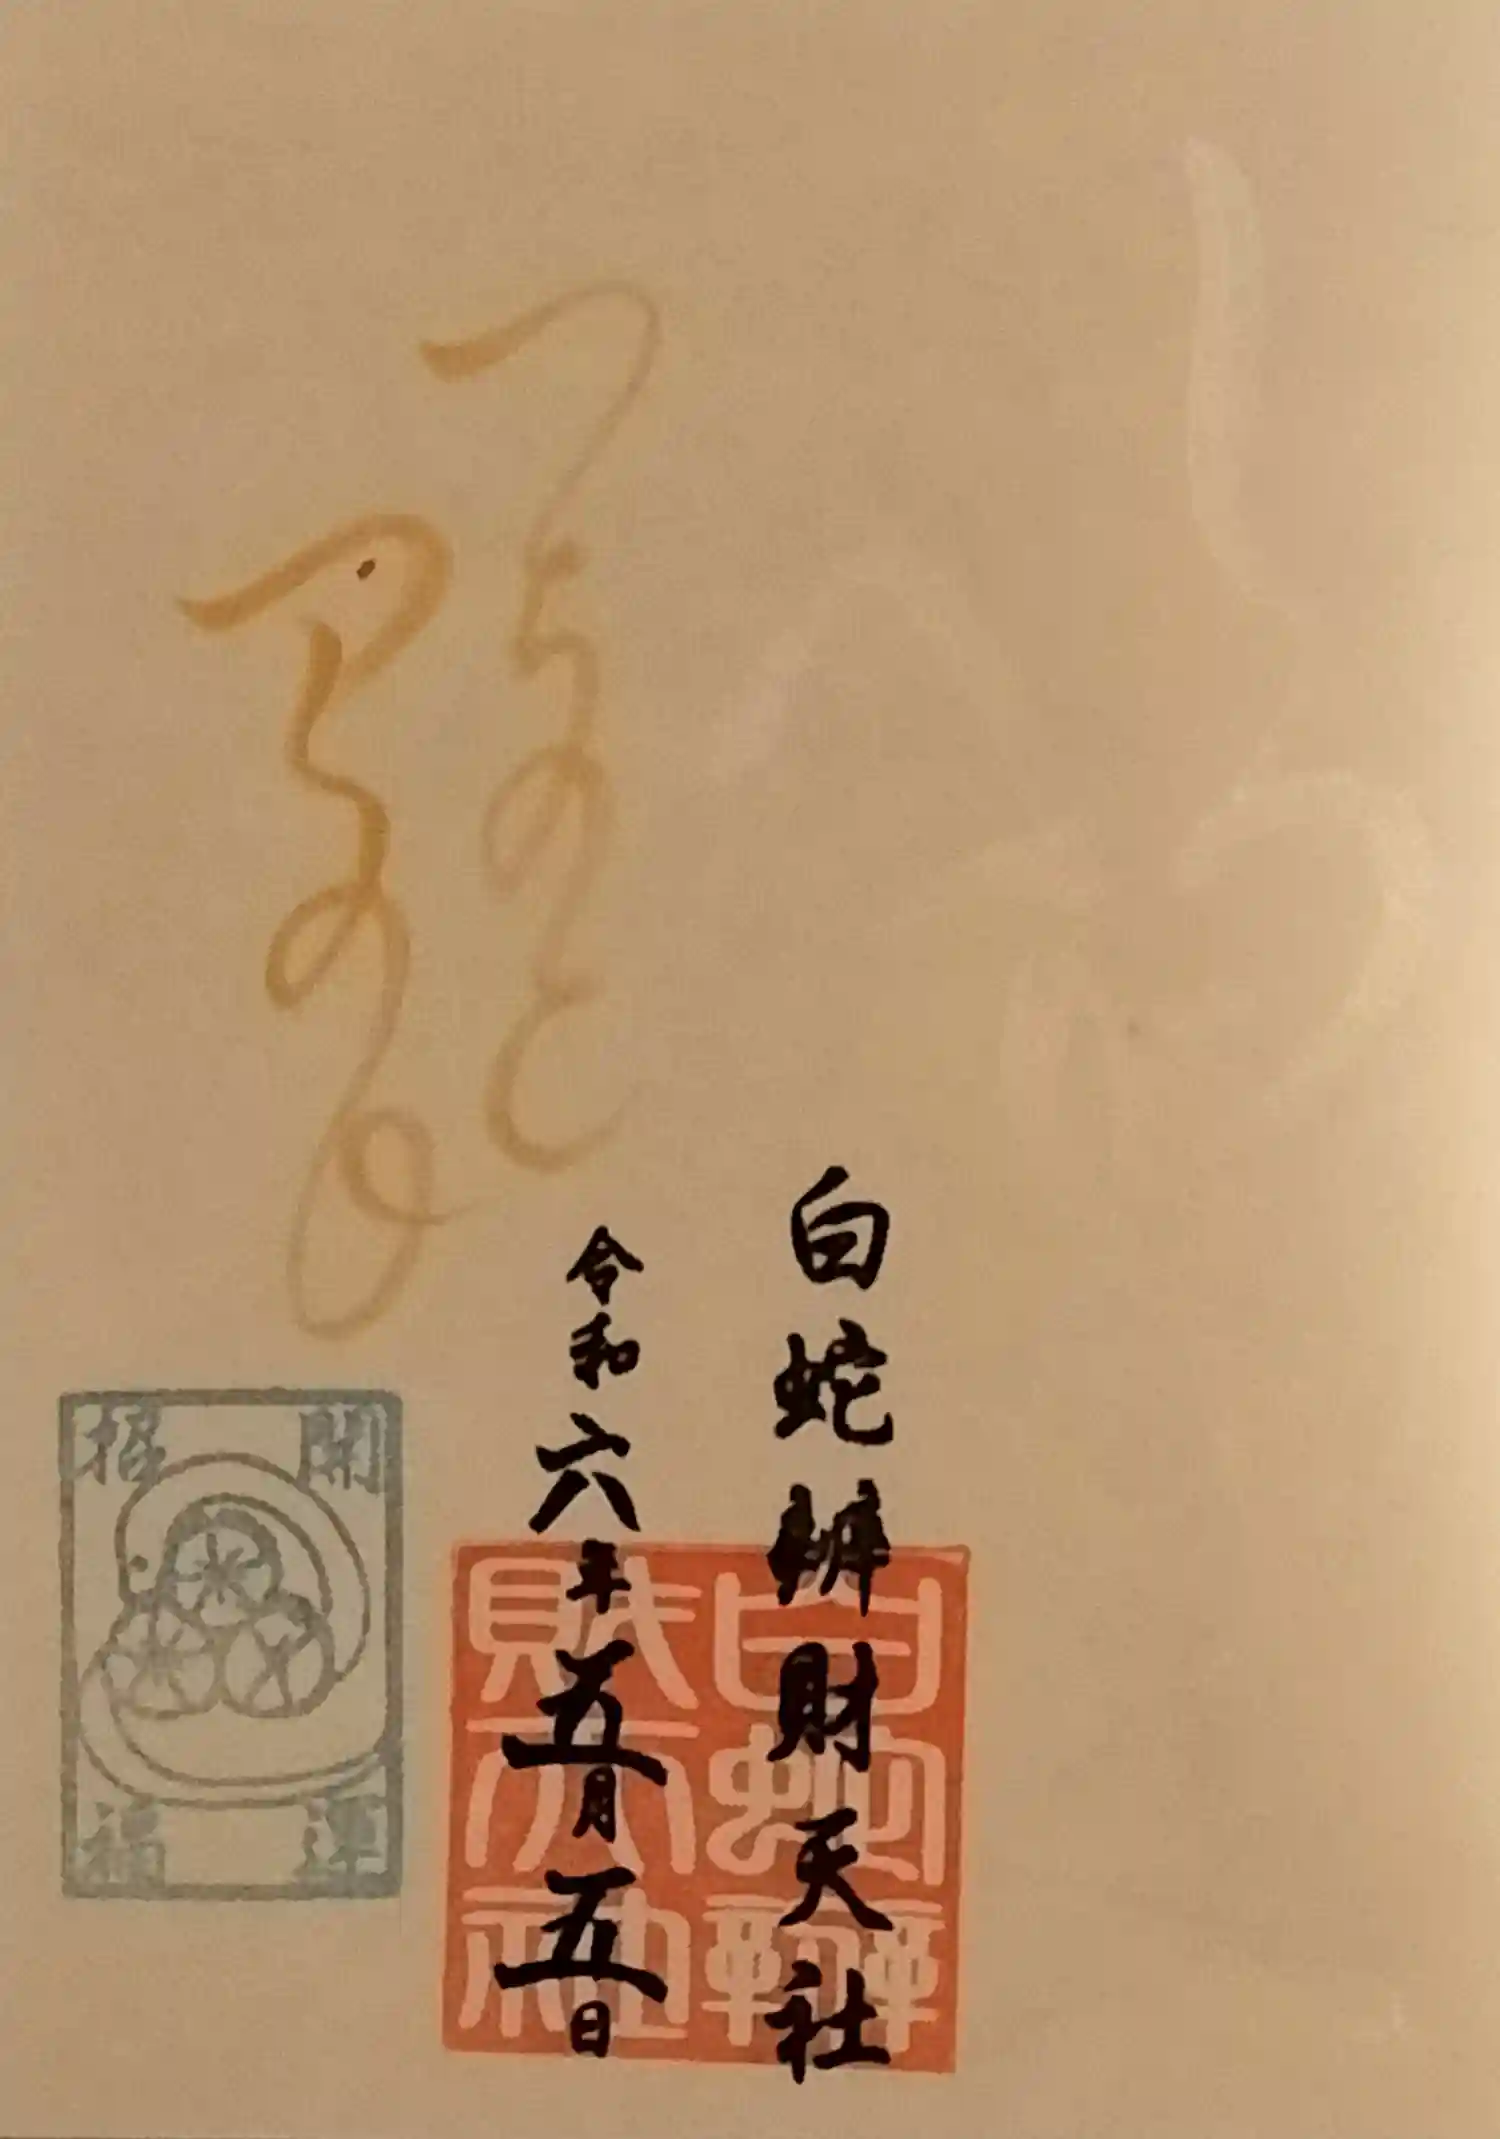 白蛇辨財天社
令和六年五月五日
白蛇辨
財天社
開運
招福